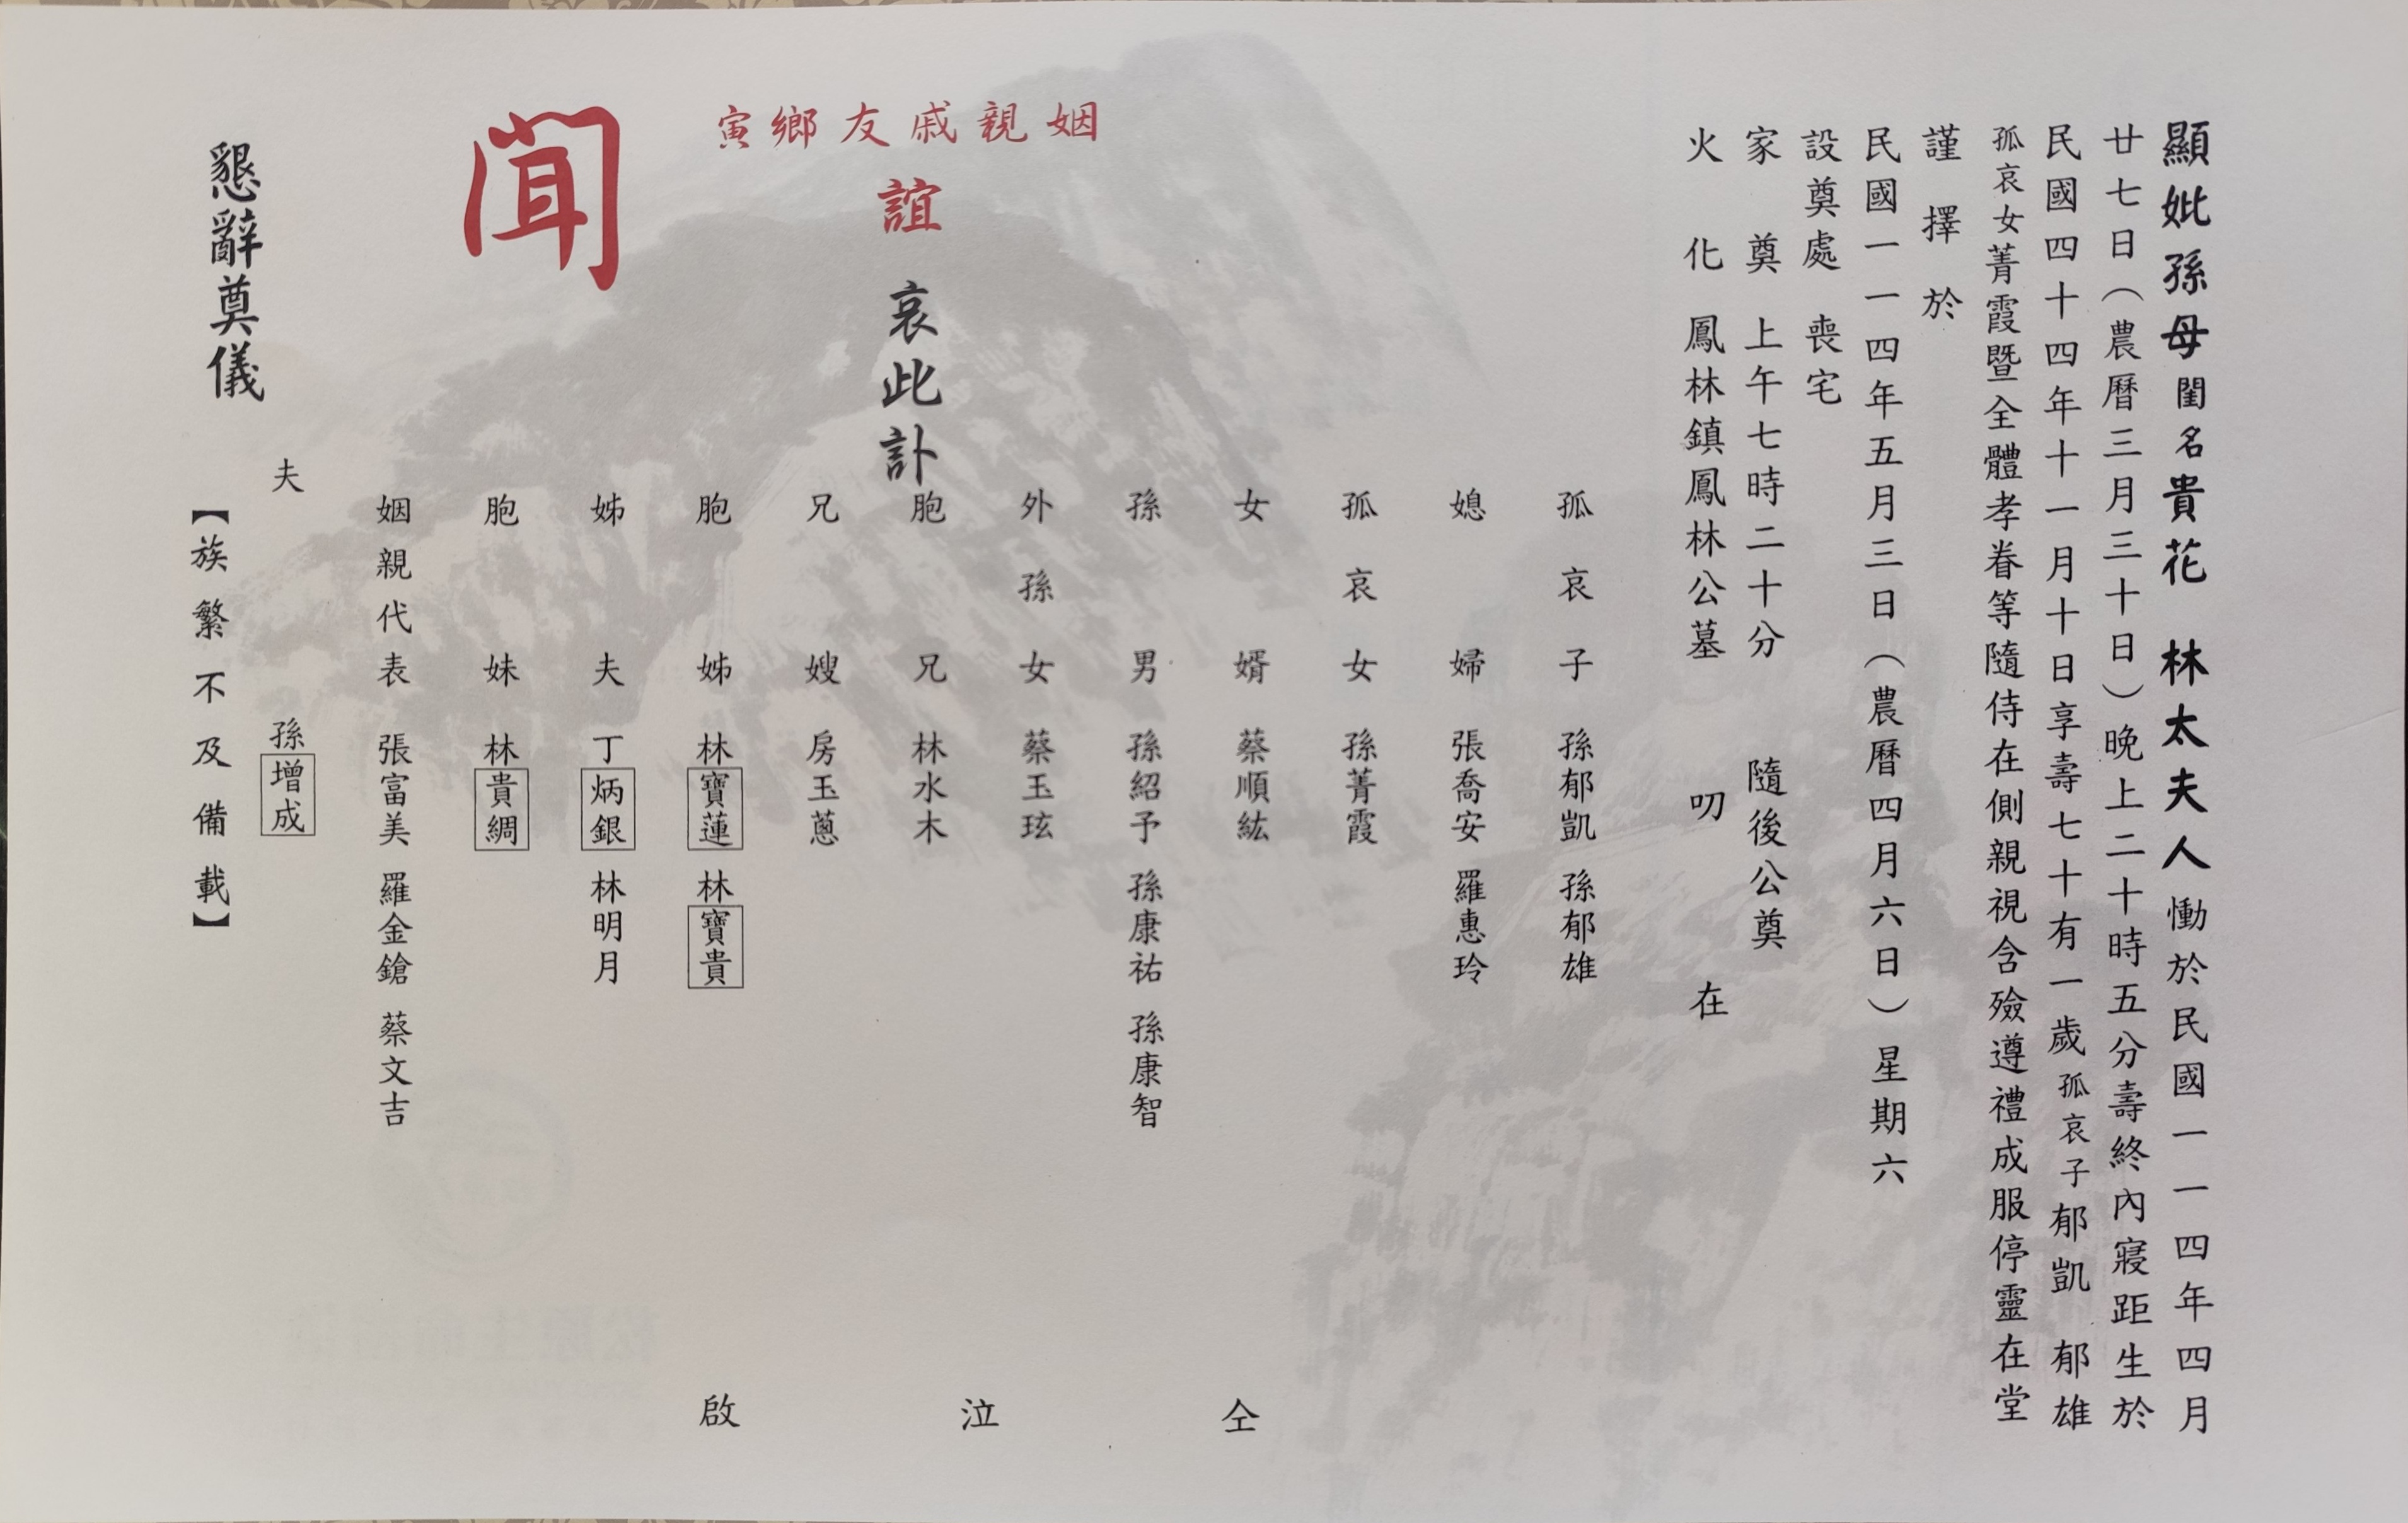 顯妣孫母閨名貴花　林太夫人慟於民國一一四年四月
廿七日（農曆三月三十日）晚上二十時五分壽終內寢距生於
民國四十四年十一月十日享壽七十有一歲孤哀子郁凱　郁雄
孤哀女菁霞暨全體孝眷等隨侍在側親視含殮遵禮成服停靈在堂
謹擇於
民國一一四年五月三日（農曆四月六日）星期六
設奠處　喪宅
家奠　上午七時二十分　隨後公奠
火化　鳳林鎮鳳林公墓　叨在
姻親戚友鄉寅
誼
哀此訃
聞
孤哀子　孫郁凱　孫郁雄
媳婦　張喬安　羅惠玲
孤哀女　孫菁霞
女婿　蔡順紘
孫男　孫紹予　孫康祐　孫康智
外孫女　蔡玉玹
胞兄　林水木
兄嫂　房玉蔥
胞姊　林寶蓮　林寶貴
姊夫　丁炳銀　林明月
胞妹　林貴綢
姻親代表　張富美　羅金鎗　蔡文吉
夫　孫增成
仝泣啟
【族繁不及備載】
懇辭奠儀